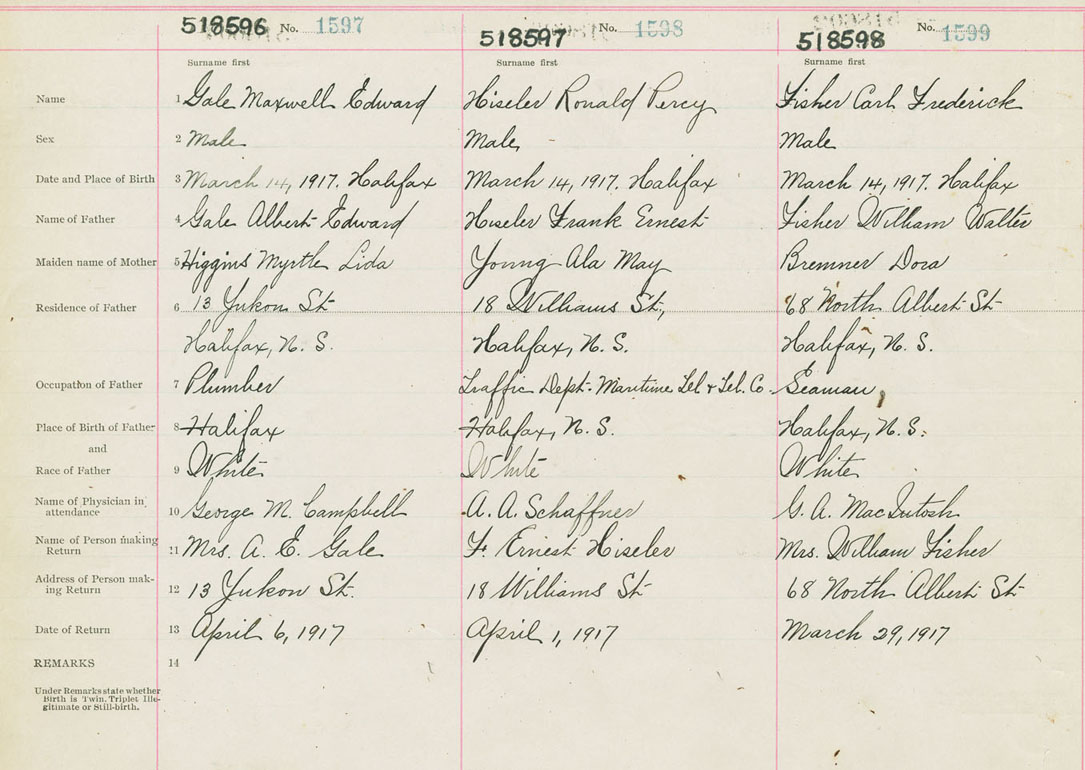 518596 No. 1597 518597 No. 1598 518598 No. 1599
Surname first Surname first Surname first
Name 1 Gale Maxwell Edward Hiseler Ronald Percy Fisher Carl Frederick
Sex 2 Male Male Male
Date and Place of Birth 3 March 14, 1917. Halifax March 14, 1917. Halifax March 14, 1917. Halifax
Name of Father 4 Gale Albert Edward Hiseler Frank Ernest Fisher William Walter
Maiden name of Mother 5 Higgins Myrtle Lida Young Ala May Bremner Dora
Residence of Father 6 13 Yukon St 18 Williams St, 68 North Albert St
Halifax, N. S. Halifax, N. S. Halifax, N. S.
Occupation of Father 7 Plumber Traffic Dept. Maritime Tel. & Tel. Co. Seaman
Place of Birth of Father 8 Halifax Halifax, N. S. Halifax, N. S.
and
Race of Father 9 White White White
Name of Physician in
attendance 10 George M. Campbell A. A. Schaffner G. A. MacIntosh
Name of Person making
Return 11 Mrs. A. E. Gale F. Ernest Hiseler Mrs. William Fisher
Address of Person mak-
ing Return 12 13 Yukon St. 18 Williams St 68 North Albert St
Date of Return 13 April 6, 1917 April 1, 1917 March 29, 1917
REMARKS 14
Under Remarks state whether
Birth is Twin, Triplet Ille-
gitimate or Still-birth.